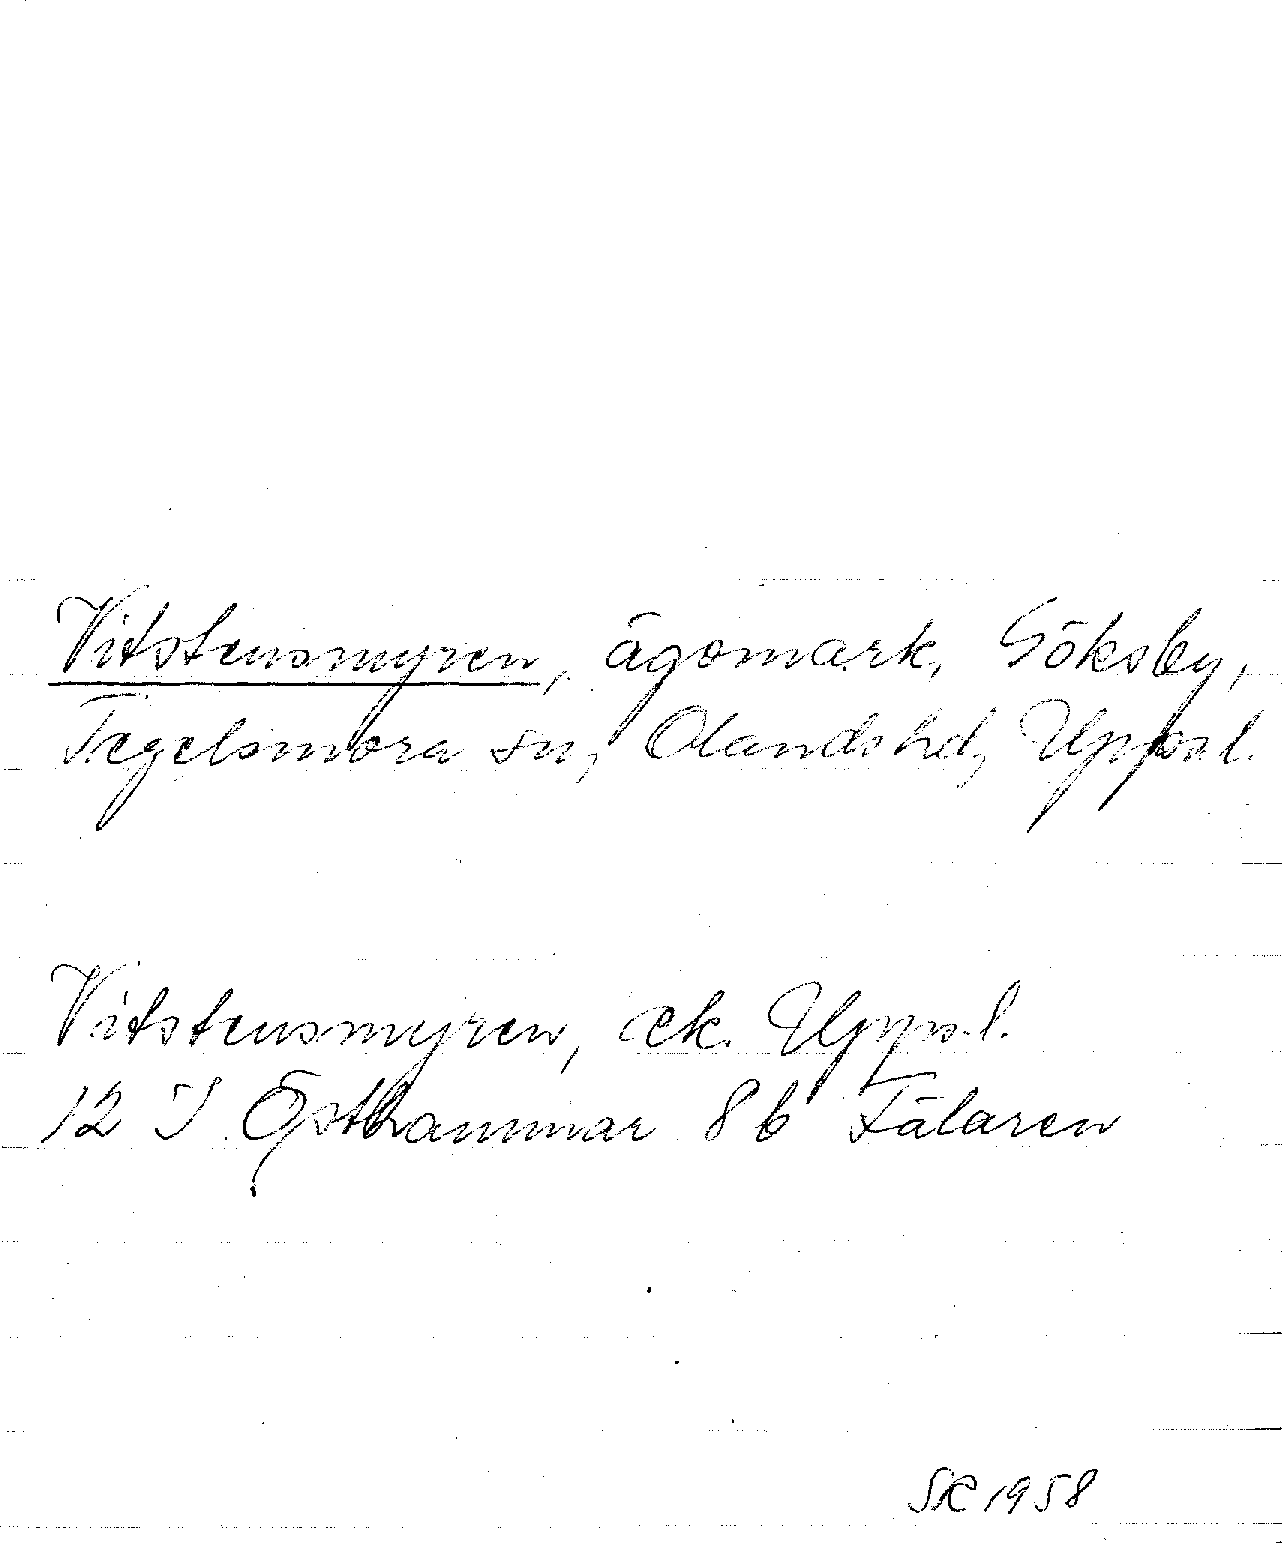 Vitstensmyren, ägomark, Göksby,
Tegelsmora sn, Olands hd, Uppsl.
Vitstensmyren, ek. Uppsl.
12 I Östhammar 8b Fälaren
SK 1958